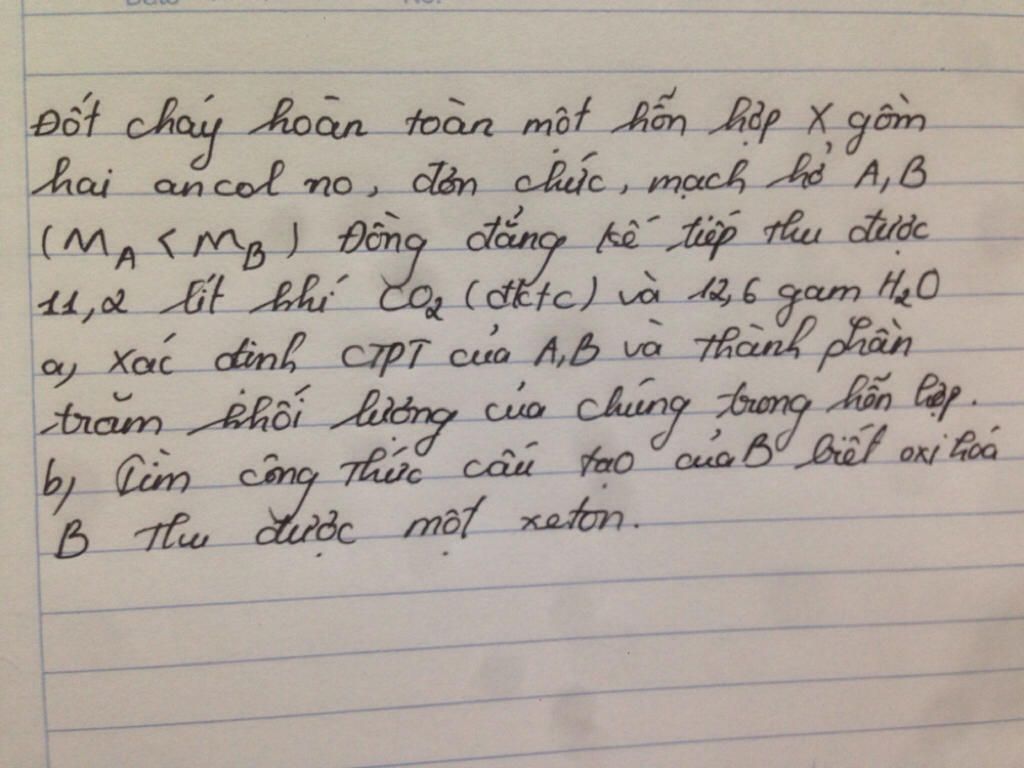 Đốt cháy hoàn toàn một hỗn hợp X gồm
hai ancol no, đơn chức, mạch hở A, B
(MA < MB) Đồng đẳng kế tiếp thu được
11,2 lít khí CO2 (đktc) và 12,6 gam H2O
a, Xác định CTPT của A, B và thành phần
trăm khối lượng của chúng trong hỗn hợp.
b, Tìm công thức cấu tạo của B biết oxi hoá
B thu được một xeton.